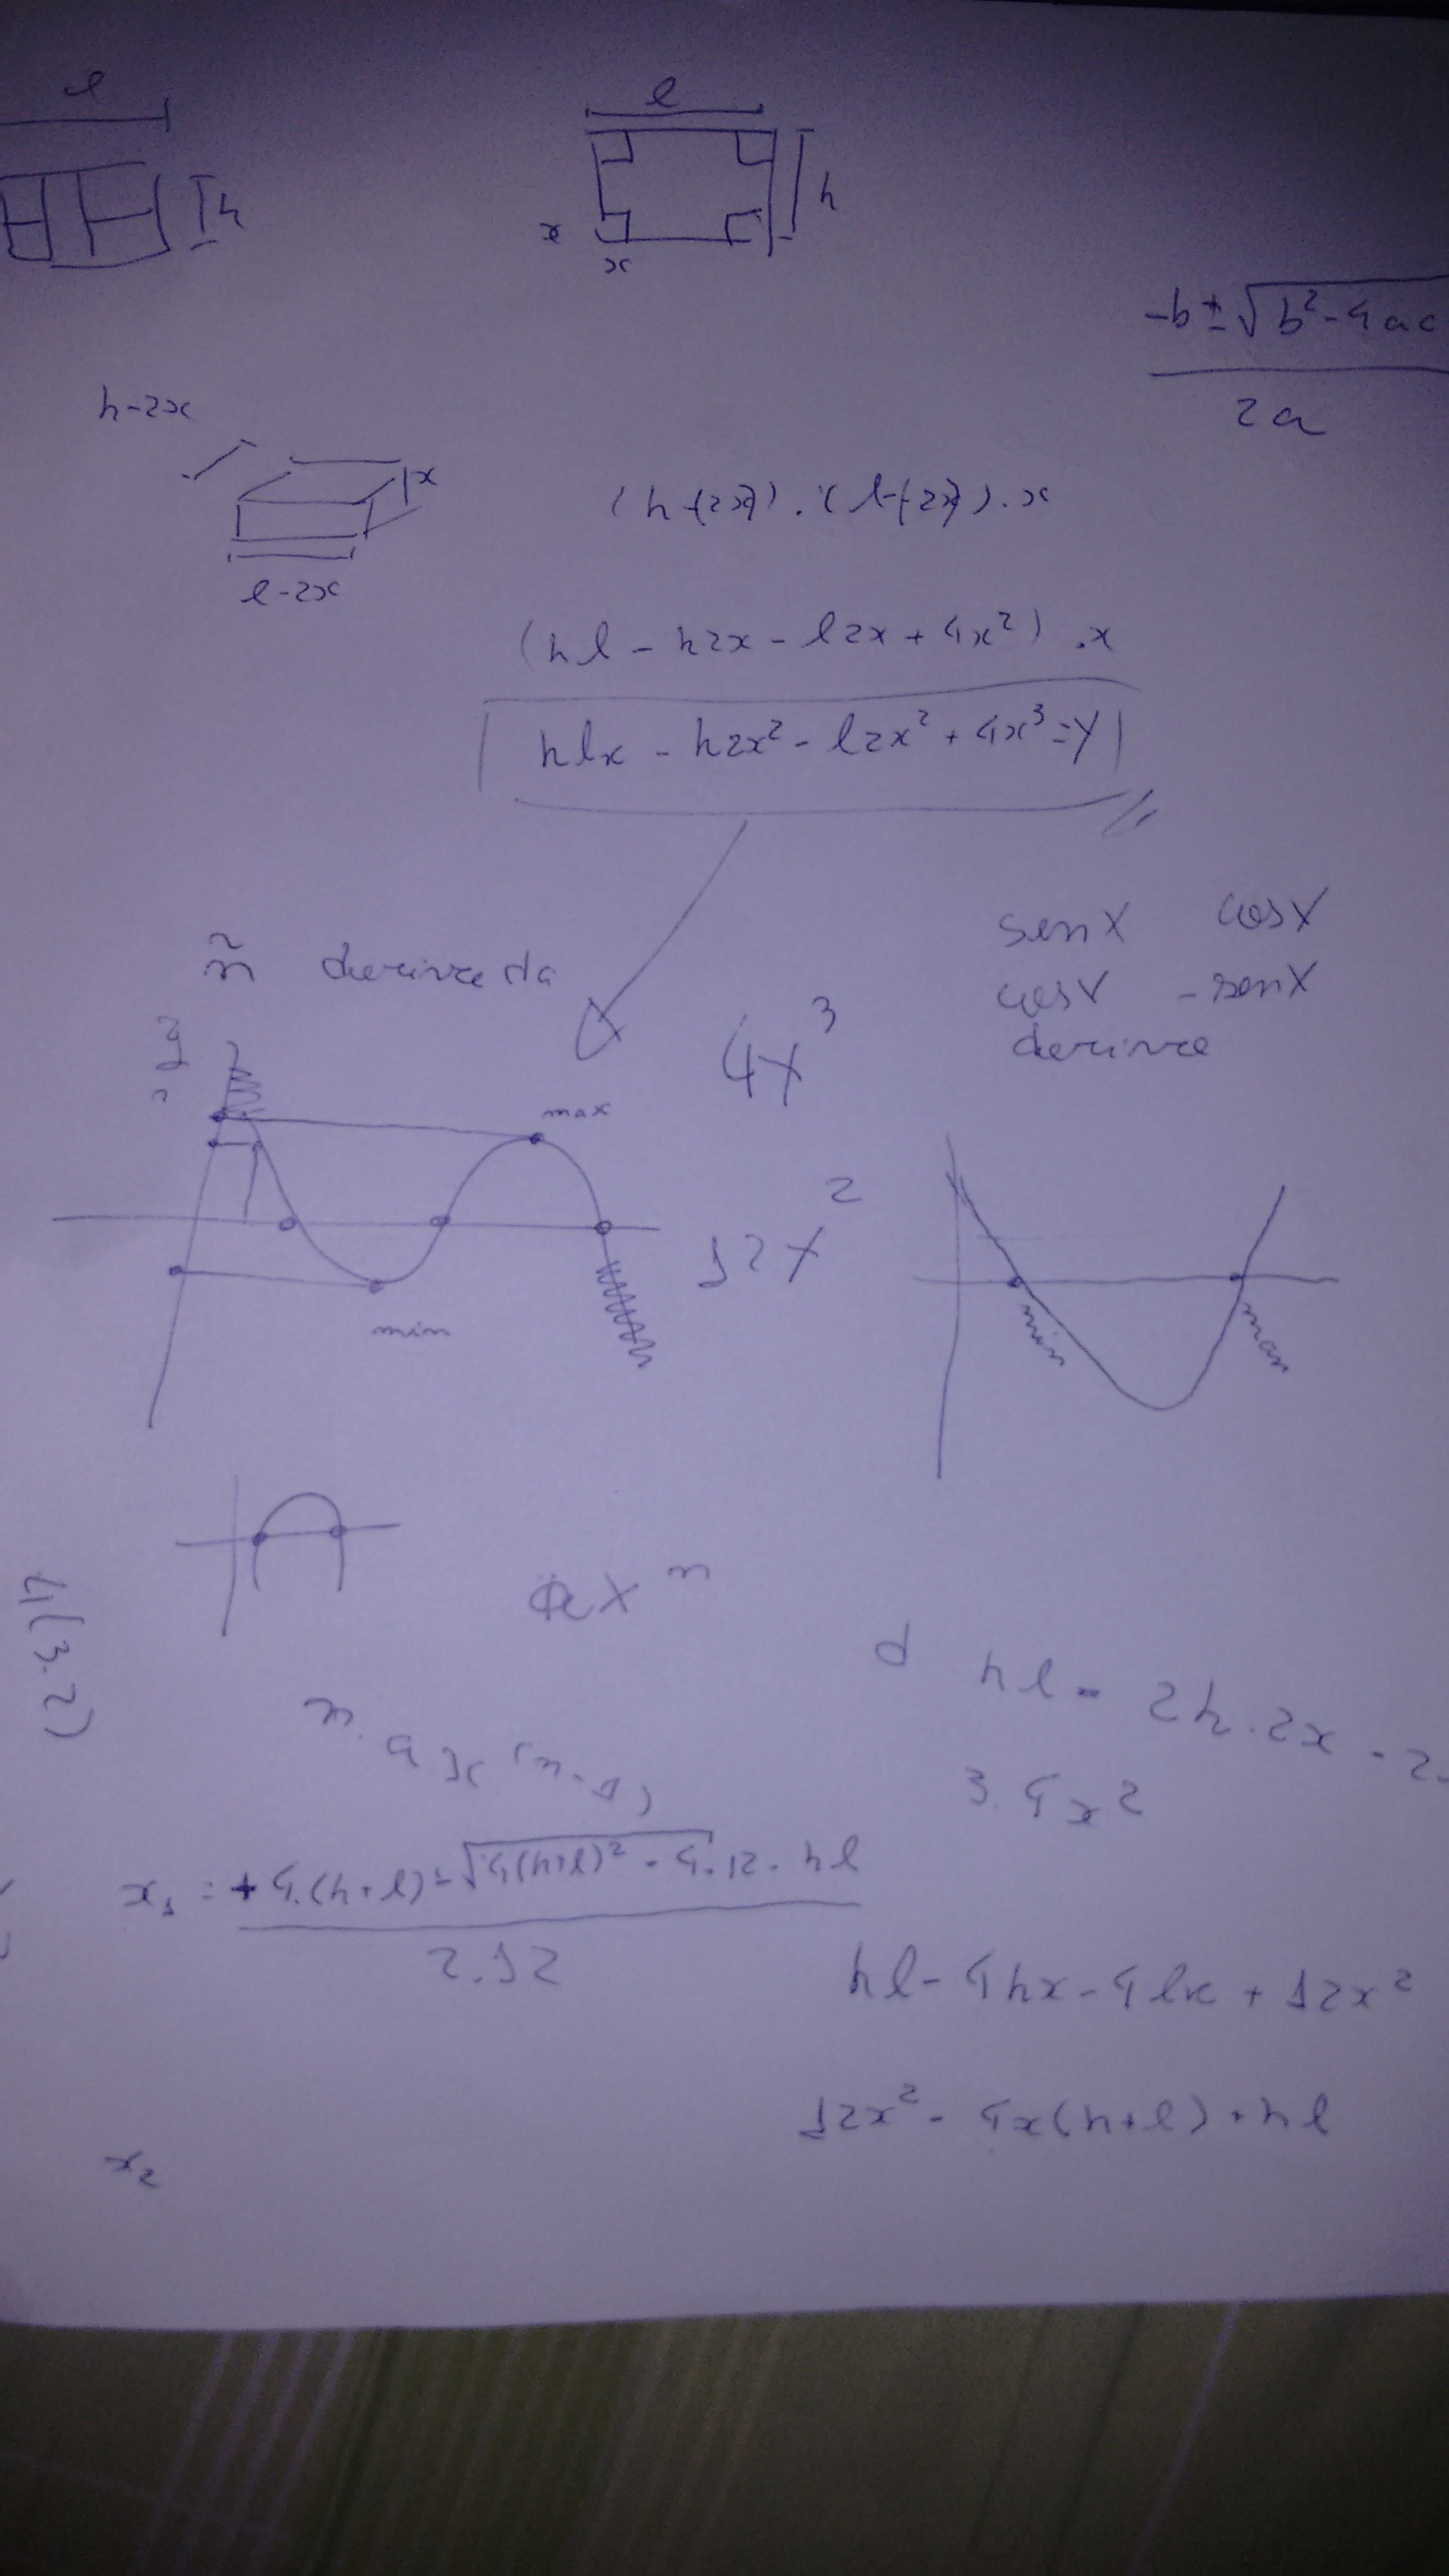 l
h
l
h
x
x
-b ± √b² - 4ac
2a
h-2x
x
l-2x
(h-(2x)).(l-(2x)).x
(hl - h2x - l2x + 4x²) .x
hlx - h2x² - l2x² + 4x³ = y
senx cosx
cosx -senx
derivre
ñ derivada
4x³
max
min
12x²
min
max
ax^n
4(3.2)
n.ax^(n-1)
d hl - 2h.2x - 2
3.4x²
x₁ = +4.(h+l) - √4(h+l)² - 4.12.hl
2.12
hl - 4hx - 4lx + 12x²
12x² - 4x(h+l) + hl
x₂